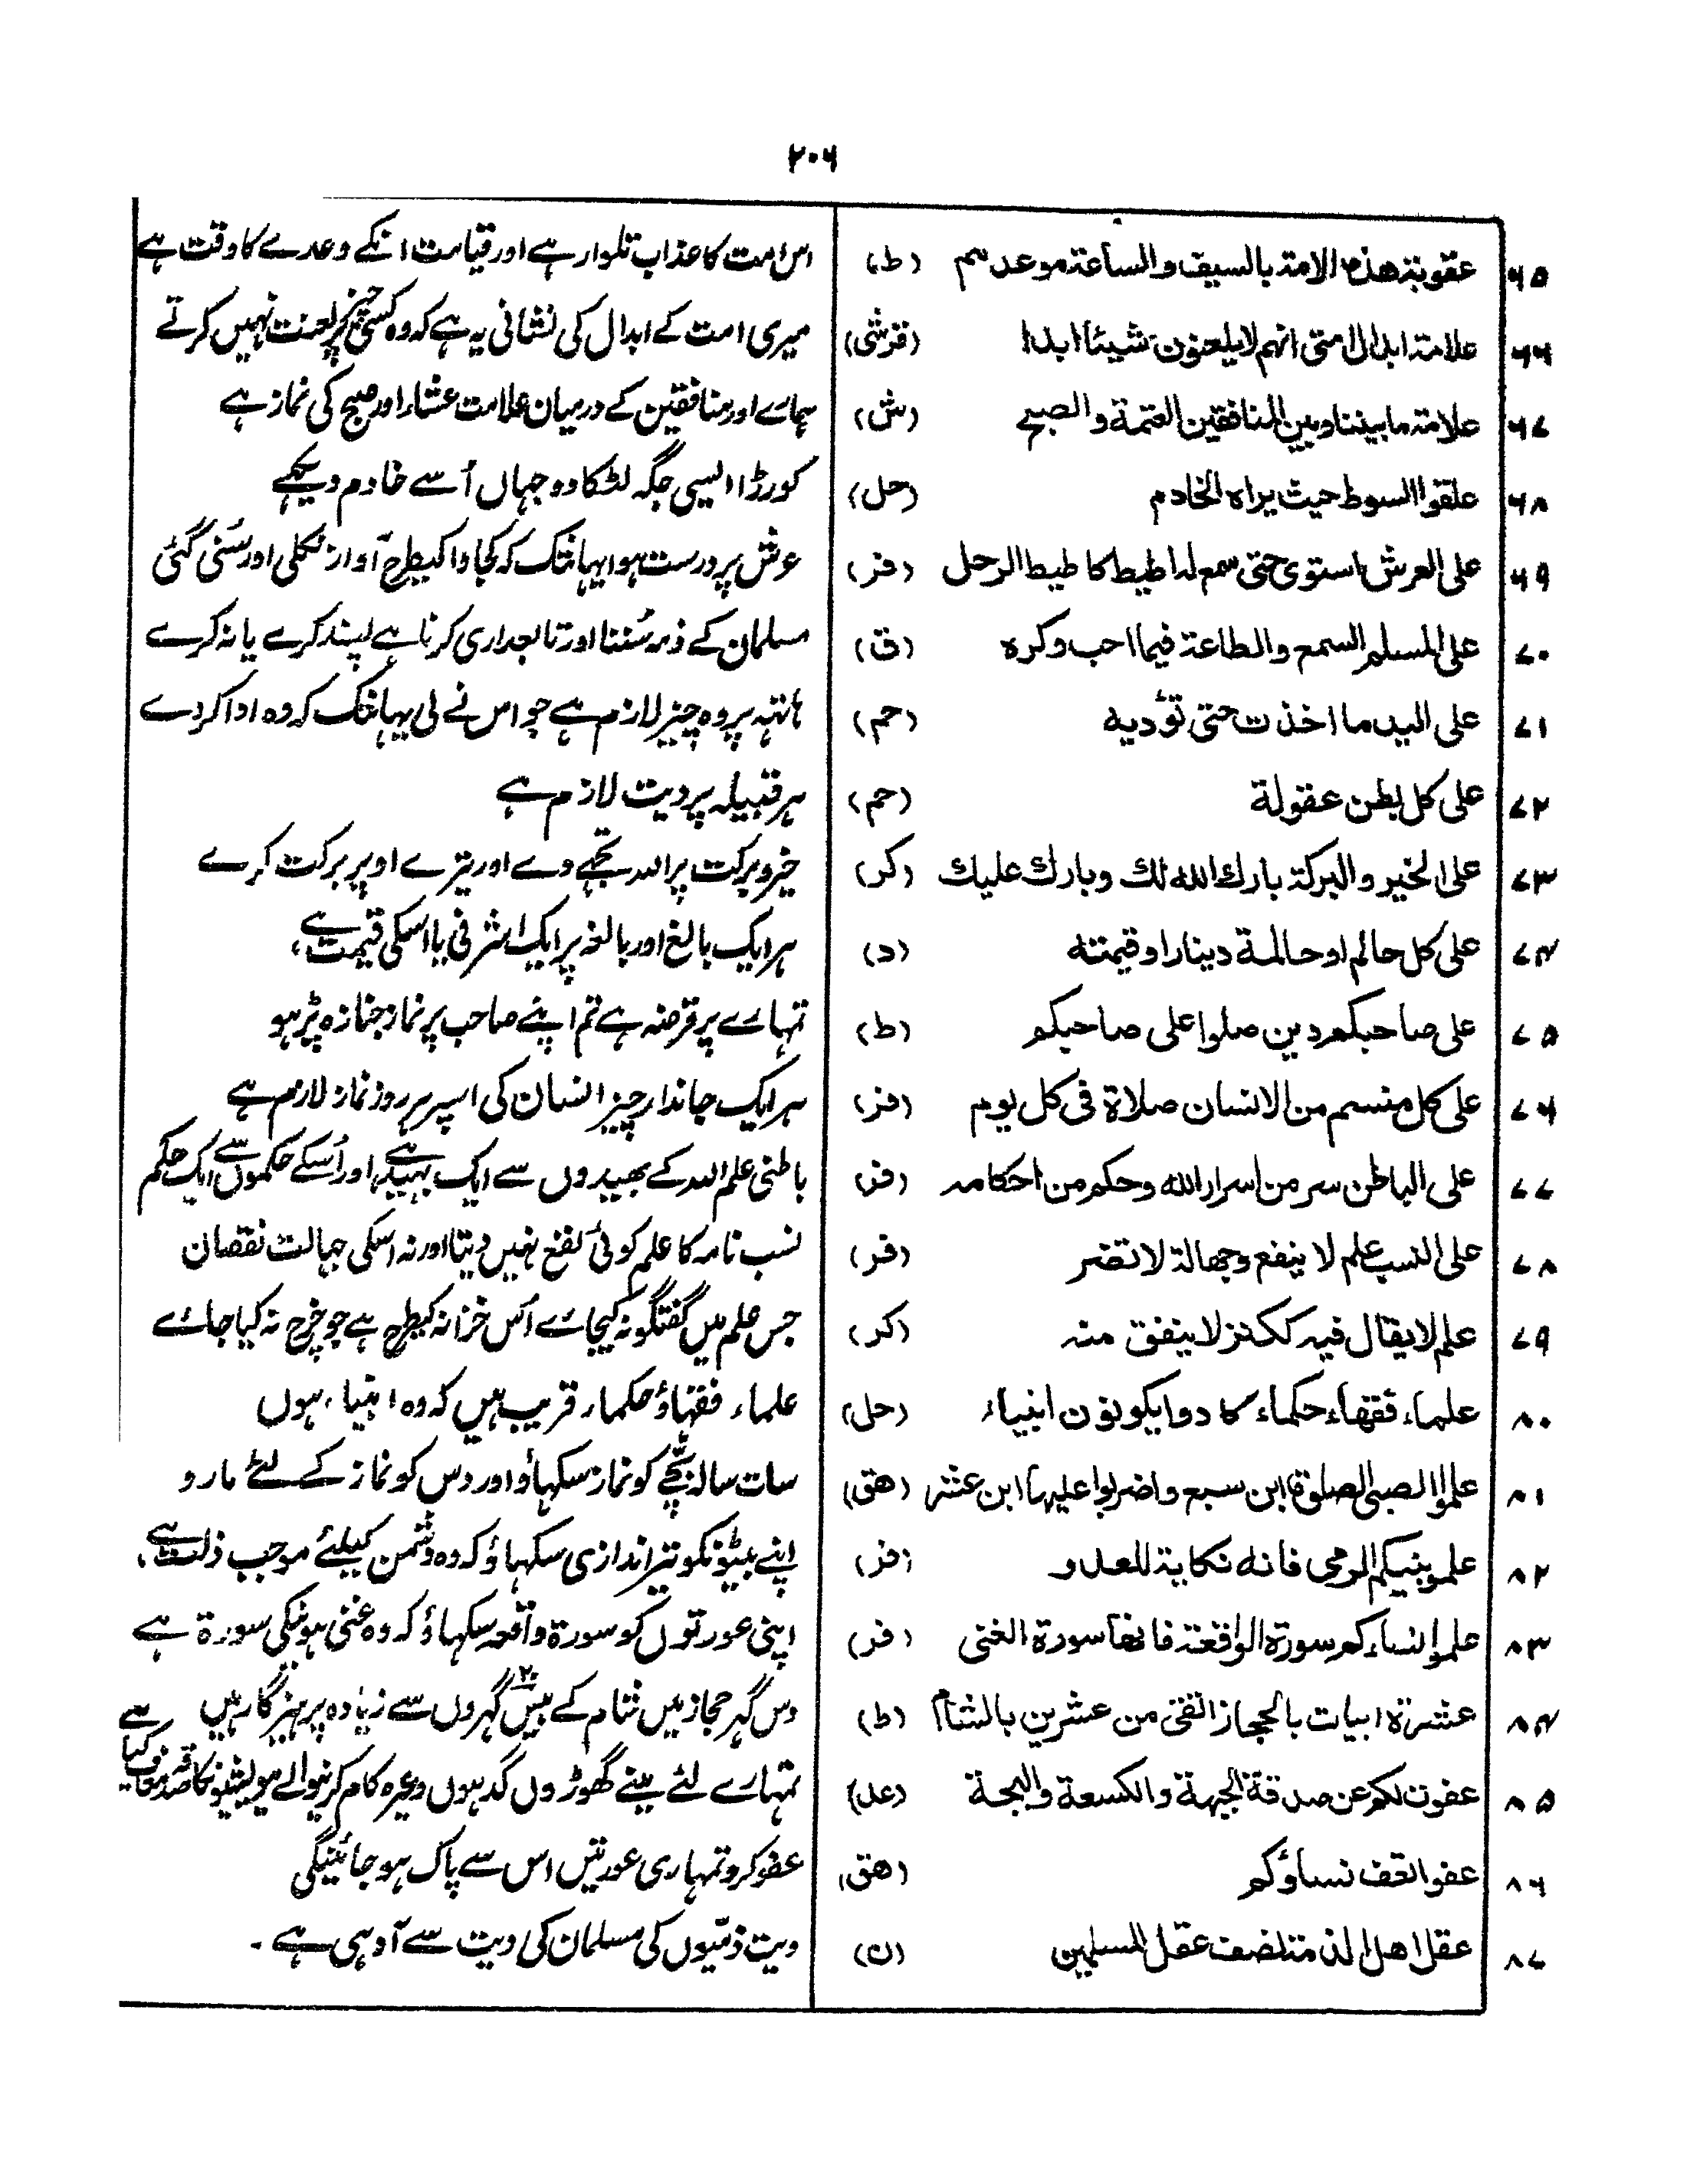 ۲۰۶
۶۵ عقوبة هذه الامة بالسیف والساعة موعدهم (ط) اس امت کا عذاب تلوار ہے اور قیامت انکے وعدے کا وقت ہے
۶۶ علامة ابدال امتی انهم لایلعنون شیئا ابدا (فرشی) میری امت کے ابدال کی نشانی یہ ہے کہ وہ کسی چیز پر لعنت نہیں کرتے
۶۷ علامة ما بیننا وبین المنافقین العتمة والصبح (ش) ہمارے اور منافقین کے درمیان علامت عشاء اور صبح کی نماز ہے
۶۸ علقوا السوط حیث یراه الخادم (حل) کورڑا ایسی جگہ لٹکا دو جہاں اُسے خادم دیکھے
۶۹ علی العرش استوی حتی سمع له اطیط کاطیط الرحل (فر) عرش پر درست ہوا یہانتک کہ کجاوا کیطرح آواز نکلی اور سُنی گئی
۷۰ علی المسلم السمع والطاعة فیما احب وکره (ق) مسلمان کے ذمہ سُننا اور تابعداری کرنا ہے پسند کرے یا نہ کرے
۷۱ علی الید ما اخذت حتی تؤدیه (حم) ہاتہہ پر وہ چیز لازم ہے جو اس نے لی یہانتک کہ وہ ادا کردے
۷۲ علی کل بطن عقولة (حم) ہر قبیلہ پر دیت لازم ہے
۷۳ علی الخیر والبرکة بارك الله لك وبارك علیك (کر) خیر وبرکت پر اللہ تجھے دے اور تیرے اوپر برکت کرے
۷۴ علی کل حالم او حالمة دینار او قیمته (د) ہر ایک بالغ اور بالغہ پر ایک اشرفی یا اسکی قیمت ہے،
۷۵ علی صاحبکم دین صلوا علی صاحبکم (ط) تہارے پر قرضہ ہے تم اپنے صاحب پر نماز جنازہ پڑہو
۷۶ علی کل منسم من الانسان صلاة فی کل یوم (فر) ہر ایک جاندار چیز انسان کی اسپر ہر روز نماز لازم ہے
۷۷ علی الباطن سر من اسرار الله وحکم من احکامه (فر) باطنی علم اللہ کے بھیدوں سے ایک بہید ہے اور اُسکے حکموں سے ایک حکم
۷۸ علی النسب علم لا ینفع وجهالة لا تضر (فر) نسب نامہ کا علم کوئی نفع نہیں دیتا اور نہ اسکی جہالت نقصان
۷۹ علم لا یقال فیه ککنز لا ینفق منه (کر) جس علم میں گفتگو نہ کیجائے اُس خزانہ کیطرح ہے جو خرچ نہ کیا جائے
۸۰ علماء فقهاء حکماء کادوا یکونون انبیاء (حل) علماء فقہاؤ حکماء قریب ہیں کہ وہ انبیاء ہوں
۸۱ علموا الصبی الصلوة ابن سبع واضربوا علیها ابن عشر (هق) سات سالہ بچّے کو نماز سکہاؤ اور دس کو نماز کے لئے مارو
۸۲ علموا بنیکم الرمی فانه نکایة للعدو (فر) اپنے بیٹونکو تیراندازی سکہاؤ کہ وہ دشمن کیلئے موجب ذلت ہے،
۸۳ علموا نساءکم سورة الواقعة فانها سورة الغنی (فر) اپنی عورتوں کو سورة واقعہ سکہاؤ کہ وہ غنی ہونیکی سورة ہے
۸۴ عشرة ابیات بالحجاز اتقی من عشرین بالشام (ط) دس گہر حجاز میں شام کے بیس ۲۰ گہروں سے زیادہ پرہیزگار ہیں
۸۵ عفوت لکم عن صدقة الجبهة والکسعة والنجة (عد) تمہارے لئے مینے گھوڑوں گدہوں وغیرہ کام کرنیوالے مویشیونکا صدقہ معاف کیا ہے
۸۶ عفوا تعف نساؤکم (هق) عفو کرو تمہاری عورتیں اس سے پاک ہو جائینگی
۸۷ عقل اهل الذمة نصف عقل المسلمین (ن) دیت ذمّیوں کی مسلمان کی دیت سے آدہی ہے ۔